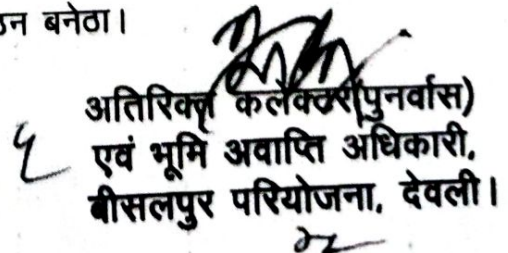 उन बनेठा।
अतिरिक्त कलेक्टर(पुनर्वास)
एवं भूमि अवाप्ति अधिकारी,
बीसलपुर परियोजना, देवली।